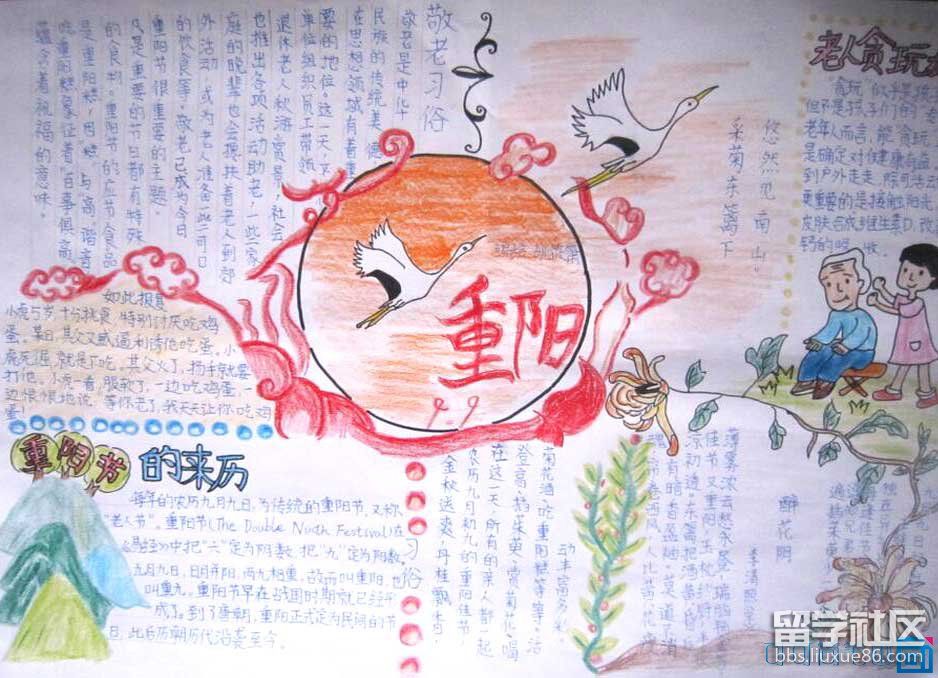 敬老习俗
敬老是中华
民族的传统美德
在思想领域有着重
要的地位,这一天,各
单位组织员工带领
退休老人秋游赏景,社会
也推出各项活动助老,一些家
庭的晚辈也会搀扶着老人到郊
外活动,或为老人准备一些可口
的饮食等,敬老已成为今日
重阳节很重要的主题。
凡是重要的节日都有特殊
的食物。重阳节的应节食品
是重阳糕,因"糕"与"高"谐音,
吃重阳糕象征着"百事俱高"
蕴含着祝福的意味。
悠然见南山。
采菊东篱下
老人贪玩
"贪玩"似乎是孩
但不是孩子们的专
老年人而言,能"贪玩
是确定对健康有益
到户外走走,除可活去
更重要的是接触阳光
皮肤合成维生素D,改
钙的吸收。
重阳
九九
如此报复
小虎5岁,十分挑食,特别讨厌吃鸡
蛋。某日,其父又威逼利诱他吃蛋。小
虎死逞,就是不吃。其父火了,扬手就要
打他。小虎一看,服软了,一边吃鸡蛋,一
边恨恨地说:等你老了,我天天让你吃鸡
蛋!
重阳节的来历
每年的农历九月九日,为传统的重阳节,又称
"老人节"。重阳节(The Double Ninth Festival)在
《易经》中把"六"定为阴数,把"九"定为阳数,
九月九日,日月并阳,两九相重,故而叫重阳,也
叫重九。重阳节早在战国时期就已经形
成了,到了唐朝,重阳正式定为民间的节
日,此后历朝历代沿袭至今。
习俗
金秋送爽,丹桂飘香,
农历九月初九的重阳佳节,
在这一天,所有的亲人都一起
登高,插茱萸,赏菊花,喝
菊花酒,吃重阳糕等等,活
动丰富多彩
醉花阴
李清照
薄雾浓云愁永昼,瑞脑
佳节又重阳,玉枕纱厨,半
凉初透。东篱把酒黄昏
有暗香盈袖。莫道不消
魂,帘卷西风,人比黄花瘦
留学社区
bbs.liuxue86.com